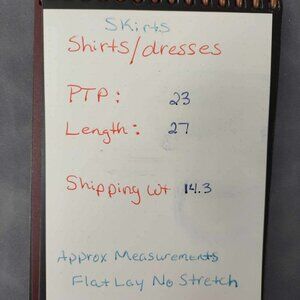 Skirts
Shirts/dresses
PTP: 23
Length: 27
Shipping wt 14.3
Approx Measurements
Flat Lay No Stretch